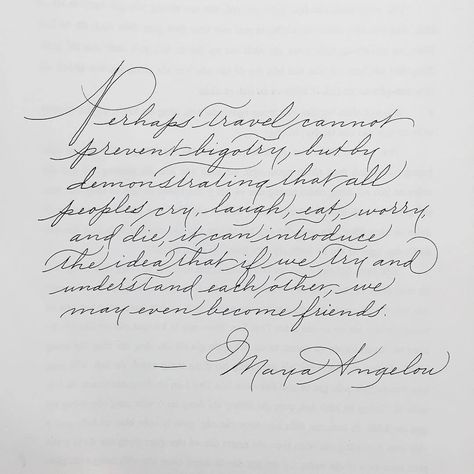 Perhaps travel cannot
prevent bigotry, but by
demonstrating that all
peoples cry, laugh, eat, worry,
and die, it can introduce
the idea that if we try and
understand each other, we
may even become friends.
— Maya Angelou